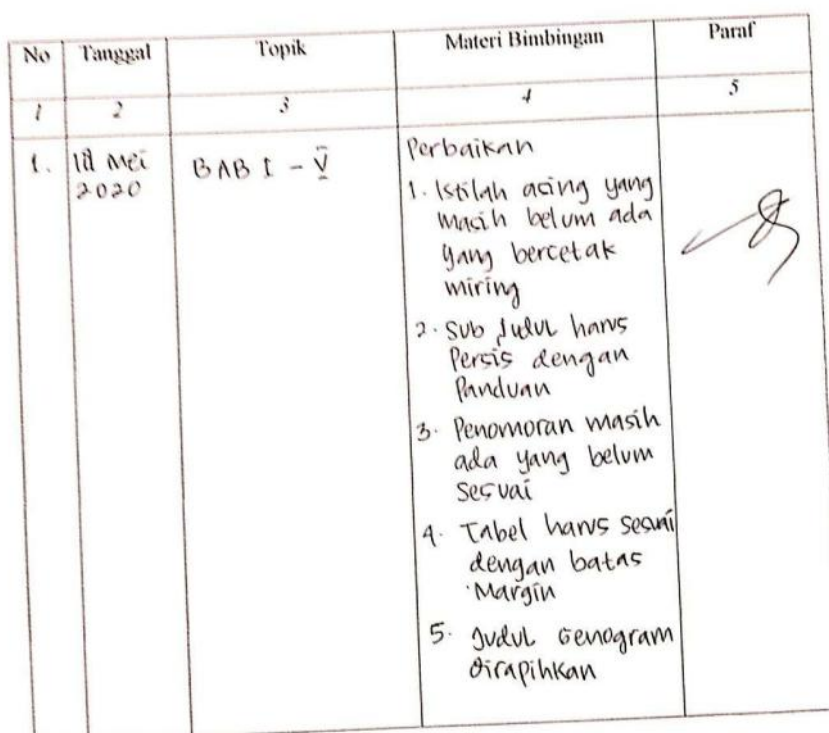 No Tanggal Topik Materi Bimbingan Paraf
1 2 3 4 5
1. Mei BAB I - V Perbaikan
2020
1. Istilah asing yang
masih belum ada
yang bercetak
miring
2. Sub Judul harus
Persis dengan
Panduan
3. Penomoran masih
ada yang belum
Sesuai
4. Tabel harus sesuai
dengan batas
Margin
5. Judul Genogram
dirapihkan